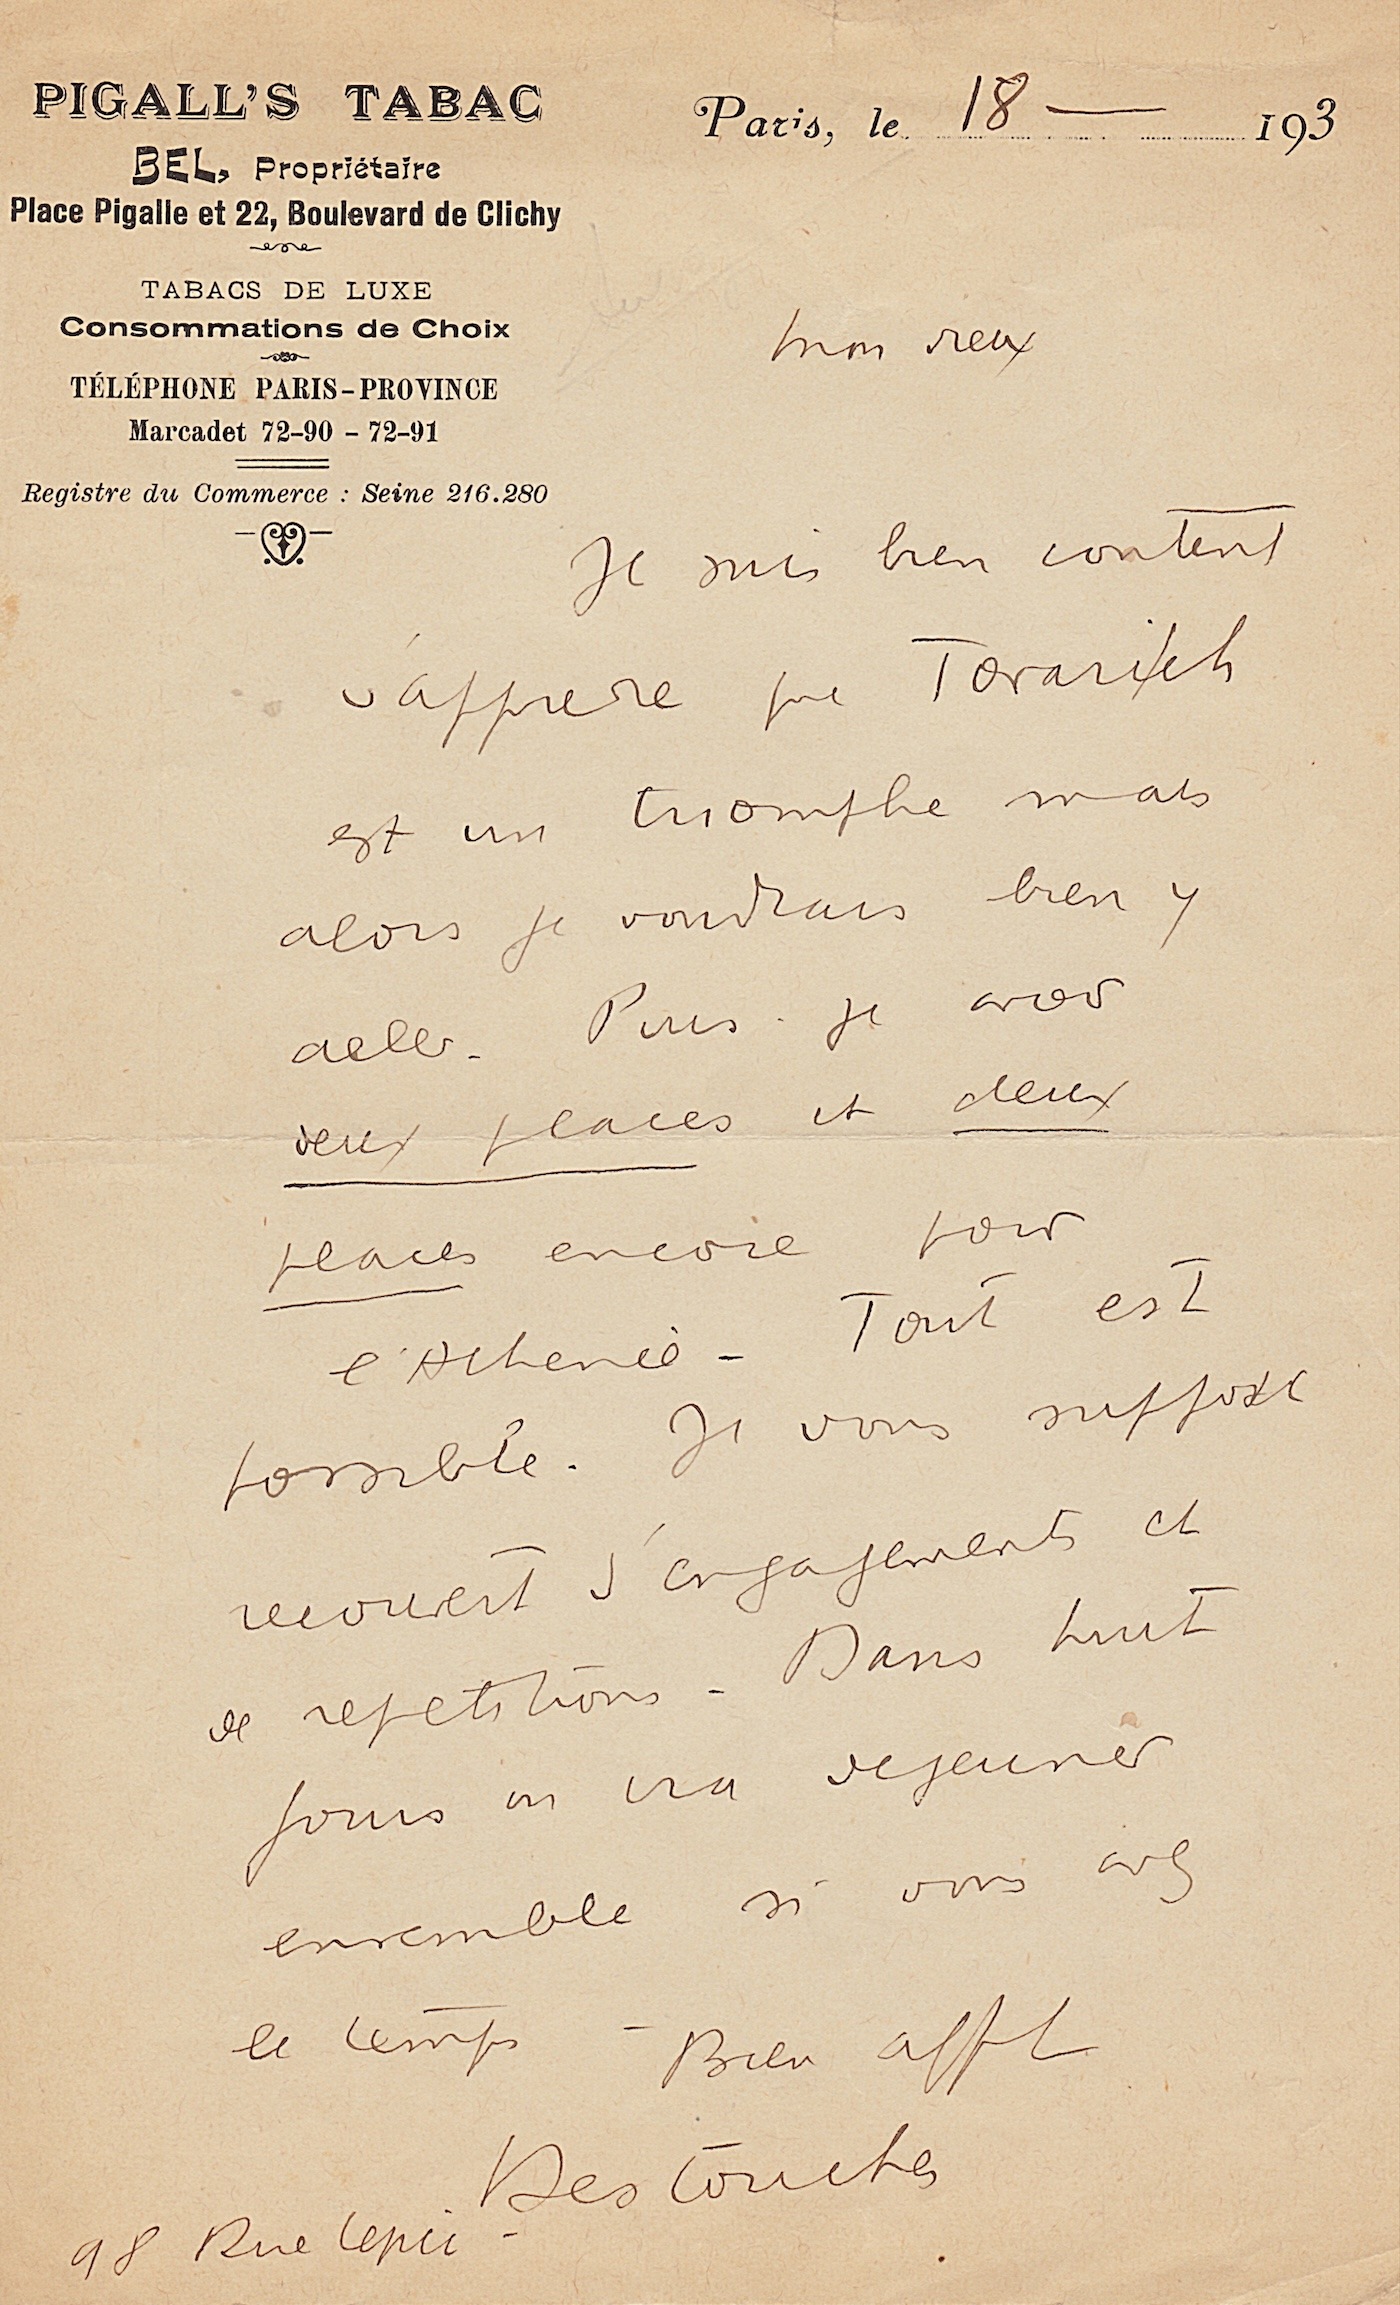 PIGALL'S TABAC
BEL, Propriétaire
Place Pigalle et 22, Boulevard de Clichy
TABACS DE LUXE
Consommations de Choix
TÉLÉPHONE PARIS-PROVINCE
Marcadet 72-90 - 72-91
Registre du Commerce : Seine 216.280
Paris, le 18 — 193
Mon vieux
Je suis bien content
d'apprendre que Tovaritch
est un triomphe mais
alors je voudrais bien y
aller. Puis-je avoir
deux places et deux
places encore pour
l'Athenée - Tout est
possible. Je vous suppose
recouvert d'engagements et
de repetitions - Dans huit
jours on ira dejeuner
ensemble si vous avez
le temps - Bien affet
Destouches
98 Rue Lepic -